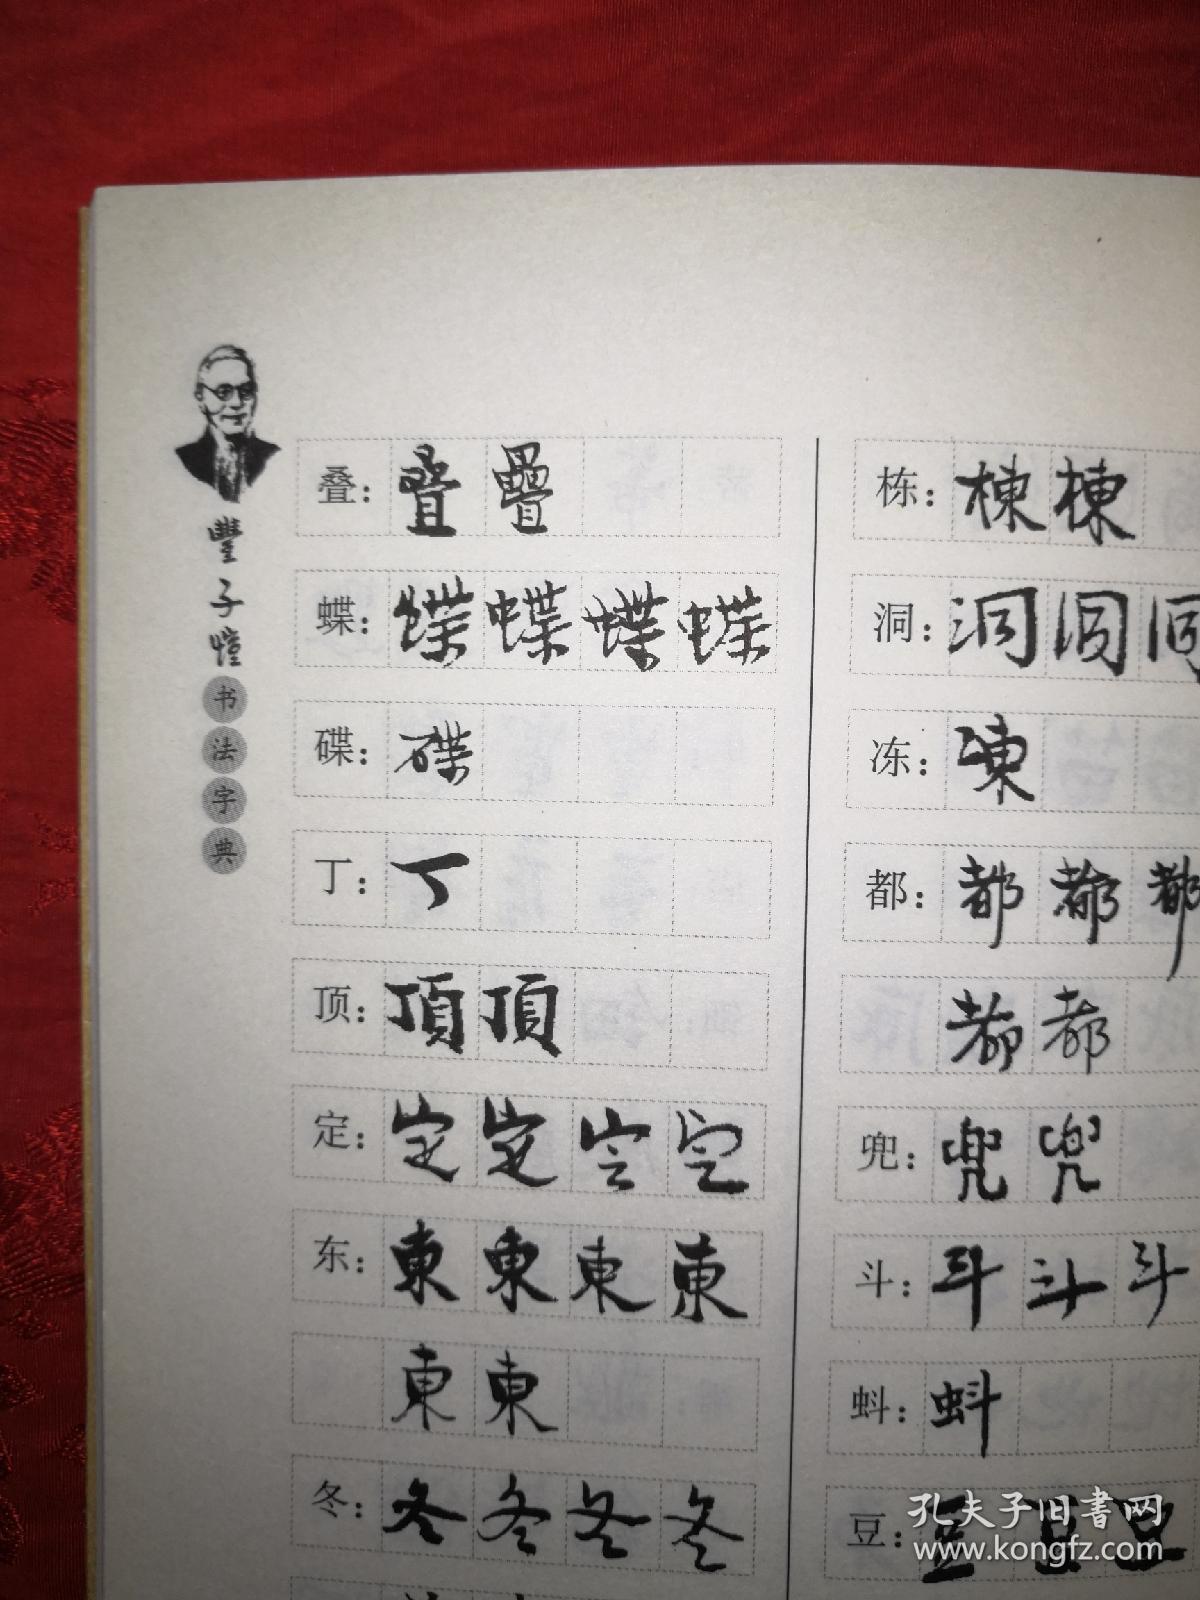 豐子愷书法字典
叠：疊 疊
蝶：蝶 蝶 蝶 蝶
碟：碟
丁：丁
顶：頂 頂
定：定 定 定 定
东：東 東 東 東
東 東
冬：冬 冬 冬 冬
栋：棟 棟
洞：洞 洞 洞
冻：凍
都：都 都 都
都 都
兜：兜 兜
斗：斗 斗 斗
蚪：蚪
豆：豆 豆 豆
孔夫子旧書网
www.kongfz.com